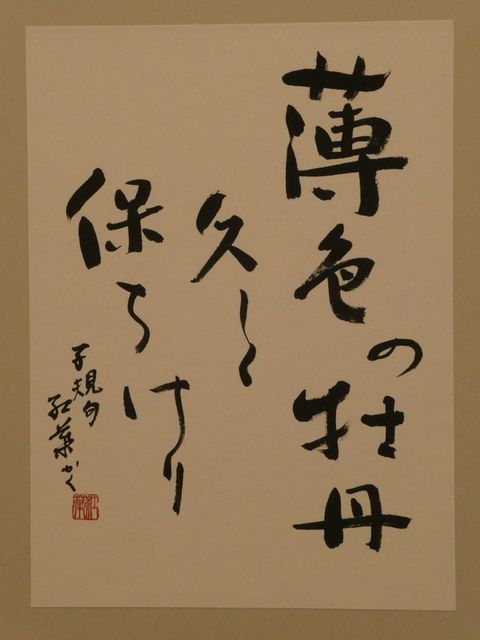 薄色の牡丹
久しく
保ちけり
子規句
紅葉かく